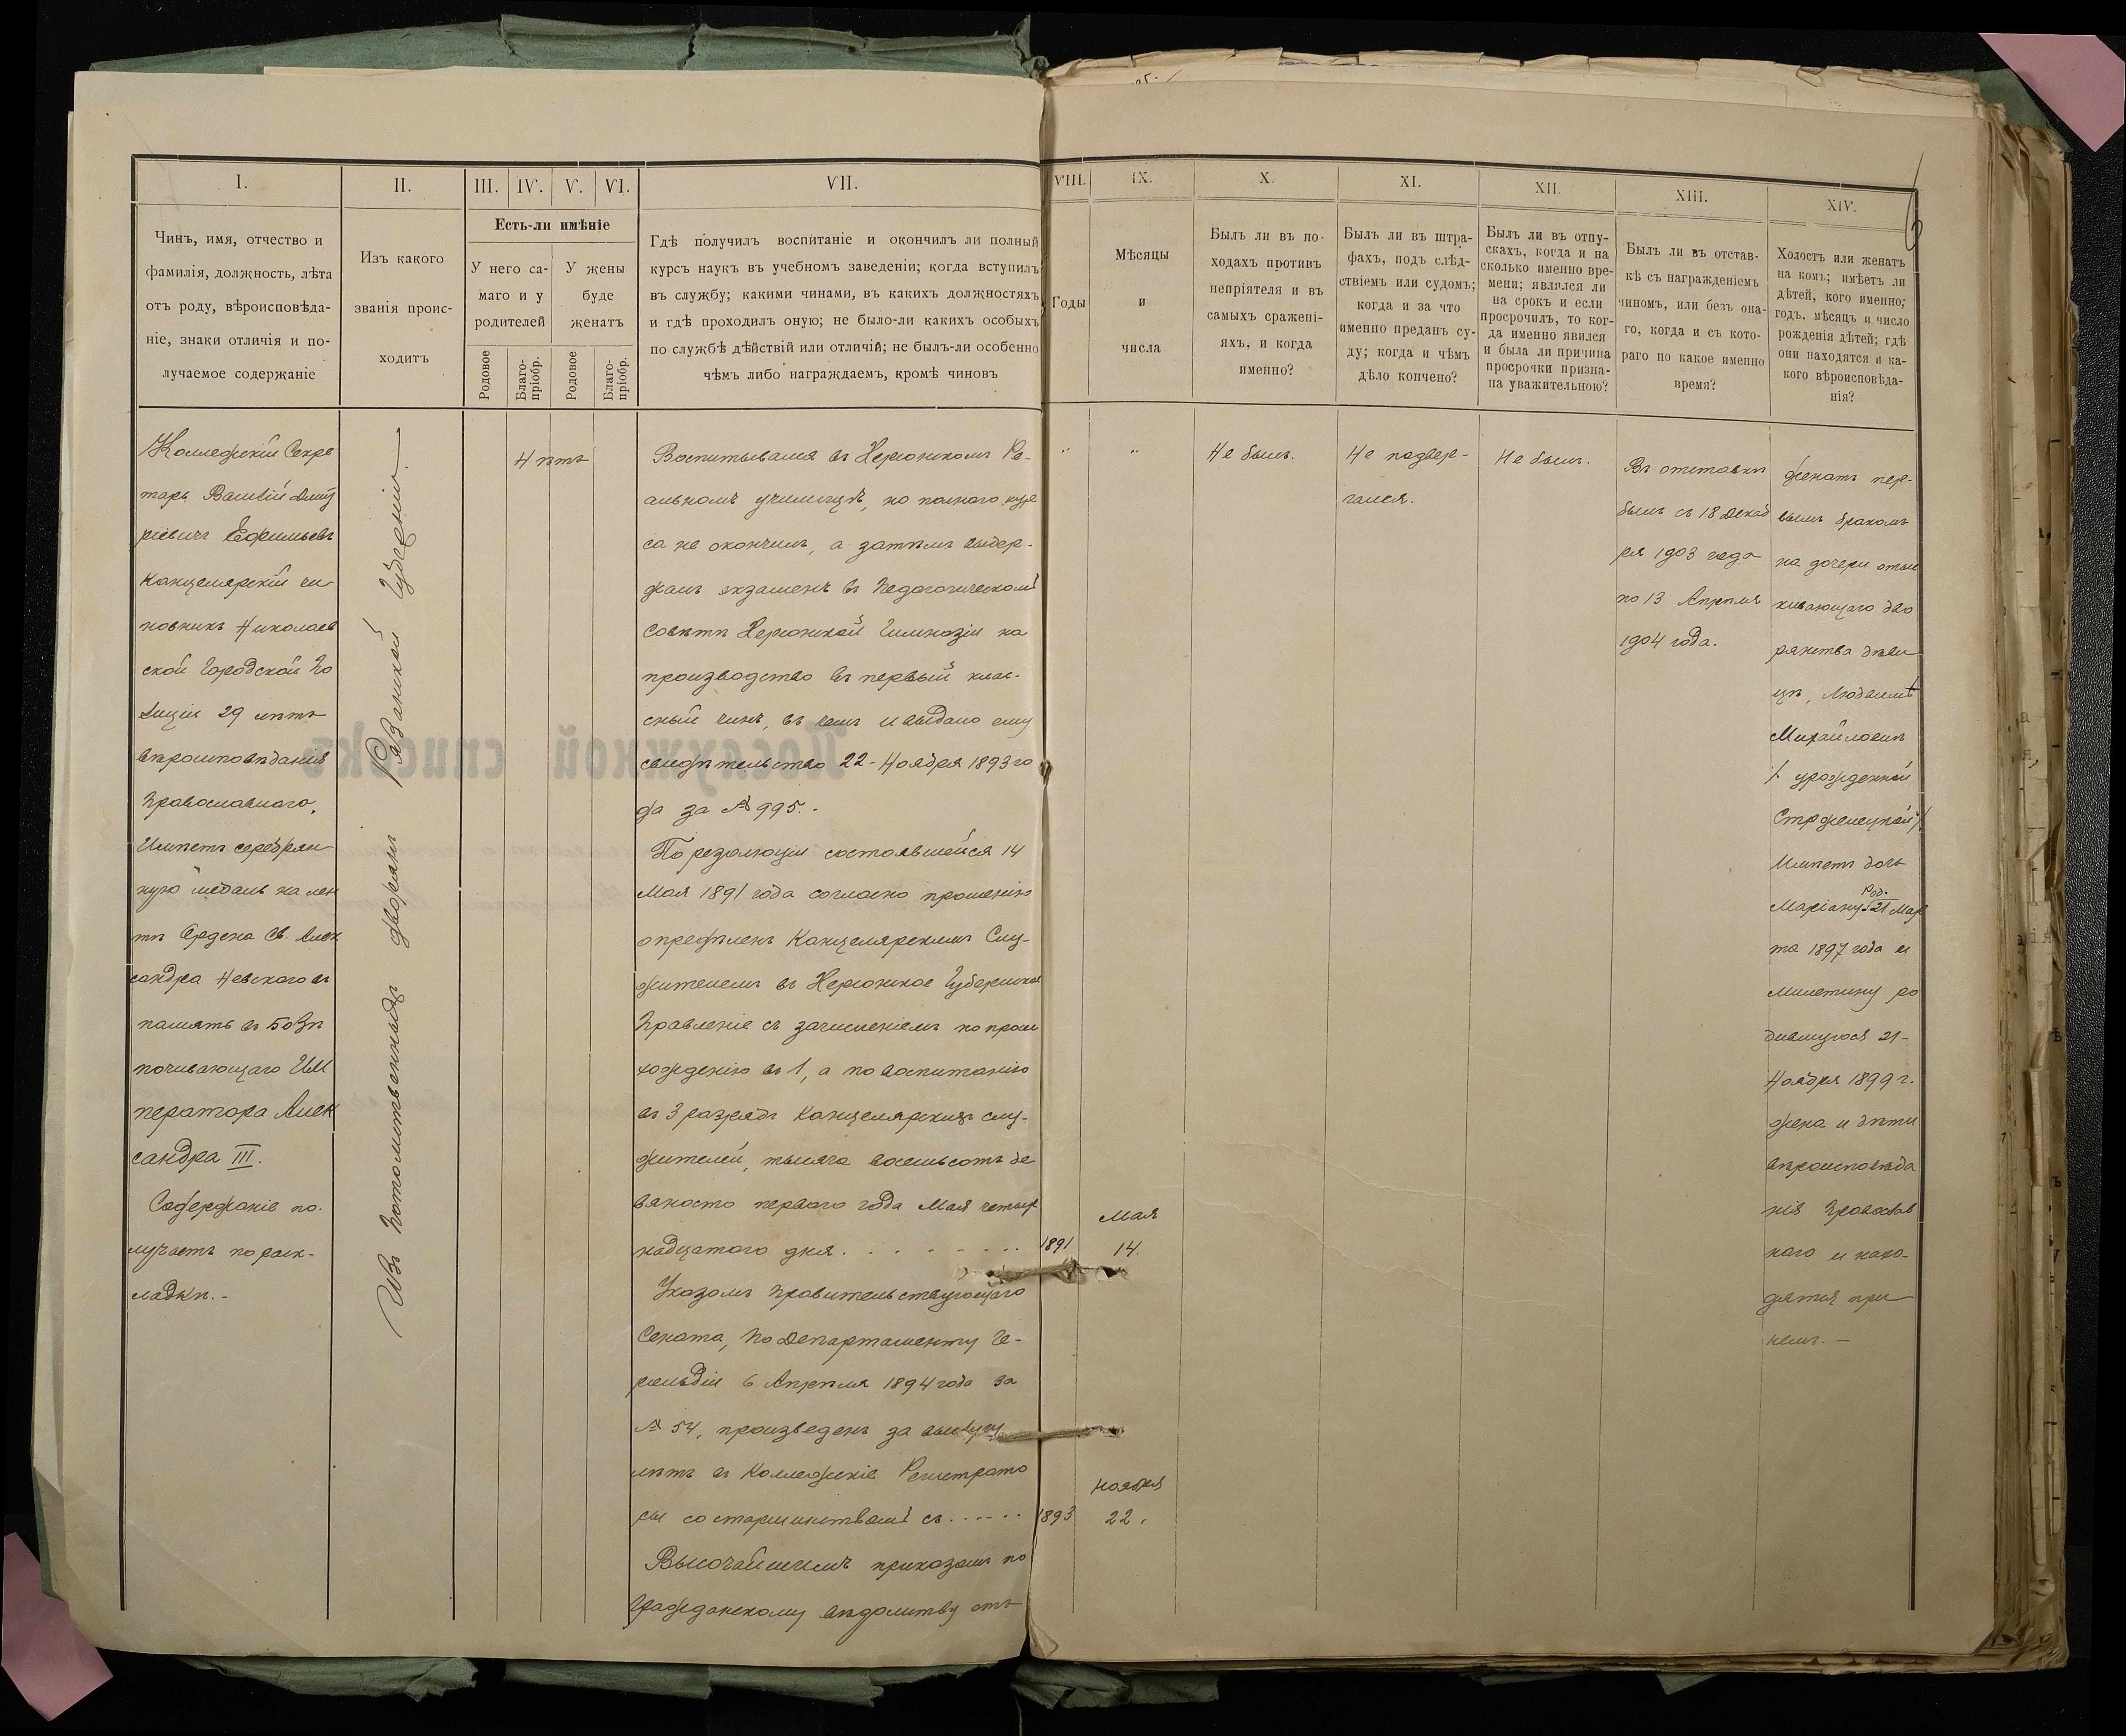 I.
II.
III.
IV.
V.
VI.
VII.
VIII.
IX.
X.
XI.
XII.
XIII.
XIV.
Чинъ, имя, отчество и
фамилія, должность, лѣта
отъ роду, вѣроисповѣда-
ніе, знаки отличія и по-
лучаемое содержаніе
Изъ какого
званія проис-
ходитъ
Есть-ли имѣніе
У него са-
маго и у
родителей
У жены
буде
женатъ
Родовое
Благо-
пріобр.
Родовое
Благо-
пріобр.
Гдѣ получилъ воспитаніе и окончилъ ли полный
курсъ наукъ въ учебномъ заведеніи; когда вступилъ
въ службу; какими чинами, въ какихъ должностяхъ
и гдѣ проходилъ оную; не было-ли какихъ особыхъ
по службѣ дѣйствій или отличій; не былъ-ли особенно
чѣмъ либо награждаемъ, кромѣ чиновъ
Годы
Мѣсяцы
и
числа
Былъ ли въ по-
ходахъ противъ
непріятеля и въ
самыхъ сражені-
яхъ, и когда
именно?
Былъ ли въ штра-
фахъ, подъ слѣд-
ствіемъ или судомъ;
когда и за что
именно преданъ су-
ду; когда и чѣмъ
дѣло кончено?
Былъ ли въ отпу-
скахъ, когда и на
сколько именно вре-
мени; являлся ли
на срокъ и если
просрочилъ, то ког-
да именно явился
и была ли причина
просрочки призна-
на уважительною?
Былъ ли въ отстав-
кѣ съ награжденіемъ
чиномъ, или безъ она-
го, когда и съ кото-
раго по какое именно
время?
Холостъ или женатъ
на комъ; имѣетъ ли
дѣтей, кого именно;
годъ, мѣсяцъ и число
рожденія дѣтей; гдѣ
они находятся и ка-
кого вѣроисповѣда-
нія?
Коллежскій Секре
тарь Василій Дмит
ріевичъ Ефимьевъ
Канцелярскій чи-
новникъ Николаев
ской Городской По
лиціи 29 лѣтъ
вѣроисповѣданія
Православнаго,
Имѣетъ серебрян
ную медаль на лен
тѣ Ордена Св. Алек
сандра Невскаго въ
память въ Бозѣ
почивающаго Им
ператора Алек
сандра III.
Содержаніе по-
лучаетъ по раск-
ладкѣ.-
Изъ Потомственныхъ дворянъ Рязанской Губерніи.
Нѣтъ
Воспитывался въ Херсонскомъ Ре-
альномъ училищѣ, но полнаго кур
са не окончилъ, а затѣмъ выдер-
жалъ экзаменъ въ Педагогическомъ
Совѣтѣ Херсонской Гимназіи на
производство въ первый клас-
сный чинъ, въ чемъ и выдано ему
свидѣтельство 22-Ноября 1893 го
да за № 995.-
По резолюціи состоявшейся 14
Мая 1891 года согласно прошенію
опредѣленъ Канцелярскимъ Слу-
жителемъ въ Херсонское Губернское
Правленіе съ зачисленіемъ по проис
хожденію въ 1, а по воспитанію
въ 3 разрядъ Канцелярскихъ слу-
жителей, тысяча восемьсотъ де
вяносто перваго года Мая четыр
надцатаго дня. . . . . . . .
1891
Мая
14.
Указомъ Правительствующаго
Сената, по Департаменту Ге-
рольдіи 6 Апрѣля 1894 года за
№ 54, произведенъ за выслугу
лѣтъ въ Коллежскіе Регистрато
ры со старшинствомъ съ......
1893
Ноября
22.
Высочайшимъ приказомъ по
Гражданскому вѣдомству отъ
"
"
Не былъ.
Не подвер-
гался.
Не былъ.
Въ отставкѣ
былъ съ 18 Декаб
ря 1903 года
по 13 Апрѣля
1904 года.
Женатъ пер-
вымъ бракомъ
на дочери отыс
кивающаго дво
рянства дѣви
цѣ, Людмилѣ
Михайловнѣ
/ урожденной
Стржелецкой /
Имѣетъ дочь
Маріану род. 21 Мар
та 1897 года и
Милетину ро
дившуюся 21-
Ноября 1899 г.
Жена и дѣти
вѣроисповѣда
нія Православ
наго и нахо-
дятся при
немъ. -
Послужной списокъ